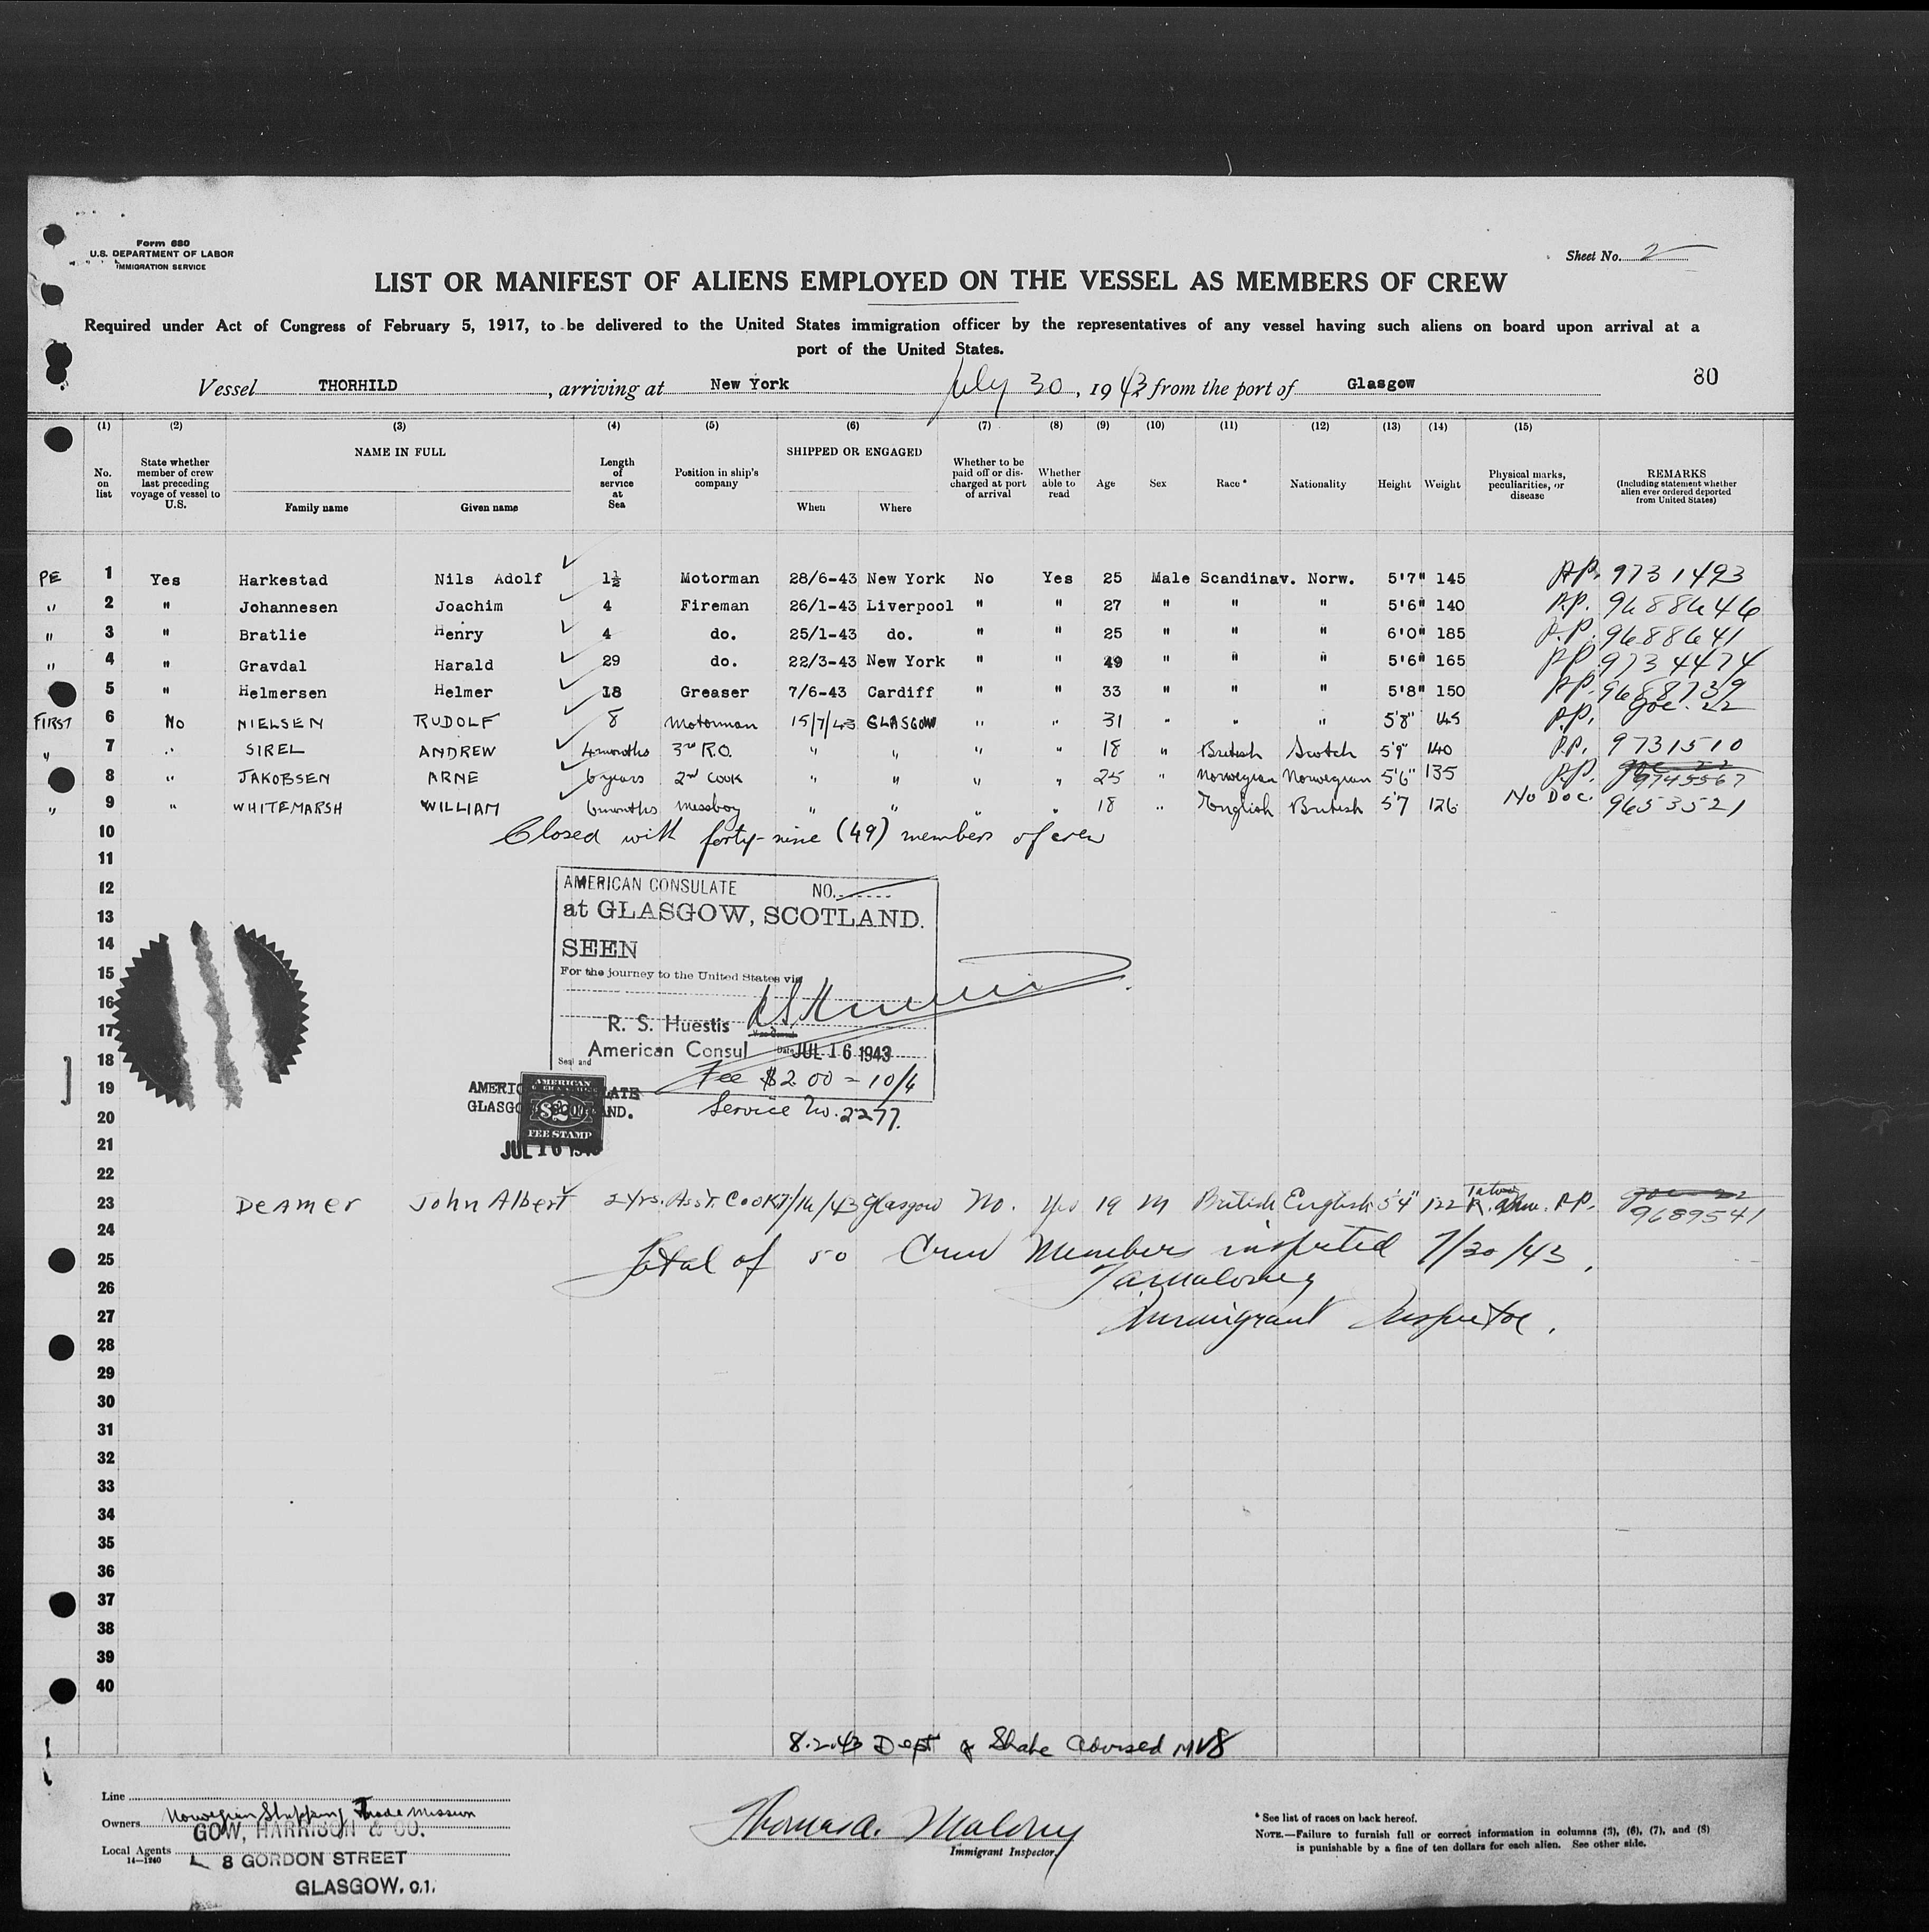 Form 680
U.S. DEPARTMENT OF LABOR
IMMIGRATION SERVICE
Sheet No. 2
LIST OR MANIFEST OF ALIENS EMPLOYED ON THE VESSEL AS MEMBERS OF CREW
Required under Act of Congress of February 5, 1917, to be delivered to the United States immigration officer by the representatives of any vessel having such aliens on board upon arrival at a
port of the United States.
Vessel THORHILD, arriving at New York July 30, 1943 from the port of Glasgow
80
(1) (2) (3) (4) (5) (6) (7) (8) (9) (10) (11) (12) (13) (14) (15)
No. on list
State whether member of crew last preceding voyage of vessel to U.S.
NAME IN FULL
Family name
Given name
Length of service at Sea
Position in ship's company
SHIPPED OR ENGAGED
When
Where
Whether to be paid off or discharged at port of arrival
Whether able to read
Age
Sex
Race *
Nationality
Height
Weight
Physical marks, peculiarities, or disease
REMARKS
(Including statement whether alien ever ordered deported from United States)
PE 1 Yes Harkestad Nils Adolf 1½ Motorman 28/6-43 New York No Yes 25 Male Scandinav. Norw. 5'7" 145 P.P. 9731493
" 2 " Johannesen Joachim 4 Fireman 26/1-43 Liverpool " " 27 " " " 5'6" 140 P.P. 9688646
" 3 " Bratlie Henry 4 do. 25/1-43 do. " " 25 " " " 6'0" 185 P.P. 9688641
" 4 " Gravdal Harald 29 do. 22/3-43 New York " " 49 " " " 5'6" 165 P.P. 9734474
5 " Helmersen Helmer 18 Greaser 7/6-43 Cardiff " " 33 " " " 5'8" 150 P.P. 9688739
FIRST 6 No NIELSEN RUDOLF 8 Motorman 15/7/43 GLASGOW " " 31 " " " 5'8" 145 P.P. 22
" 7 " SIREL ANDREW 4 months 3rd R.O. " " " " 18 " British Scotch 5'9" 140 P.P. 9731510
8 " JAKOBSEN ARNE 6 years 2nd Cook " " " " 25 " Norwegian Norwegian 5'6" 135 P.P. 9745567
" 9 " WHITEMARSH WILLIAM 6 months Messboy " " " " 18 " English British 5'7 126 No Doc. 9653521
10 Closed with forty-nine (49) members of crew
11
12
13
14
15
16
17
18
19
20
21
22
AMERICAN CONSULATE NO.
at GLASGOW, SCOTLAND.
SEEN
For the journey to the United States via
R. S. Huestis
American Consul
Seal and
Date JUL 16 1943
Fee $2.00 = 10/4
Service No. 2277.
AMERICAN
$2.00
FEE STAMP
GLASGOW
JUL 16 1943
23 DEAMER John Albert 2 Yrs. Ass't. Cook 7/16/43 Glasgow No. Yes 19 M British English 5'4" 122 P.P. 9689541
24
25 Total of 50 Crew Members inspected 7/30/43.
26 T A Maloney
27 Immigrant Inspector.
28
29
30
31
32
33
34
35
36
37
38
39
40
8.2.43 Dept of State advised MVS
Line
Owners Norwegian Shipping Trade Mission
GOW, HARRISON & CO.
Local Agents 8 GORDON STREET
14—1240
GLASGOW. C.1.
Thomas A. Maloney
Immigrant Inspector.
* See list of races on back hereof.
NOTE.—Failure to furnish full or correct information in columns (3), (6), (7), and (8)
is punishable by a fine of ten dollars for each alien. See other side.